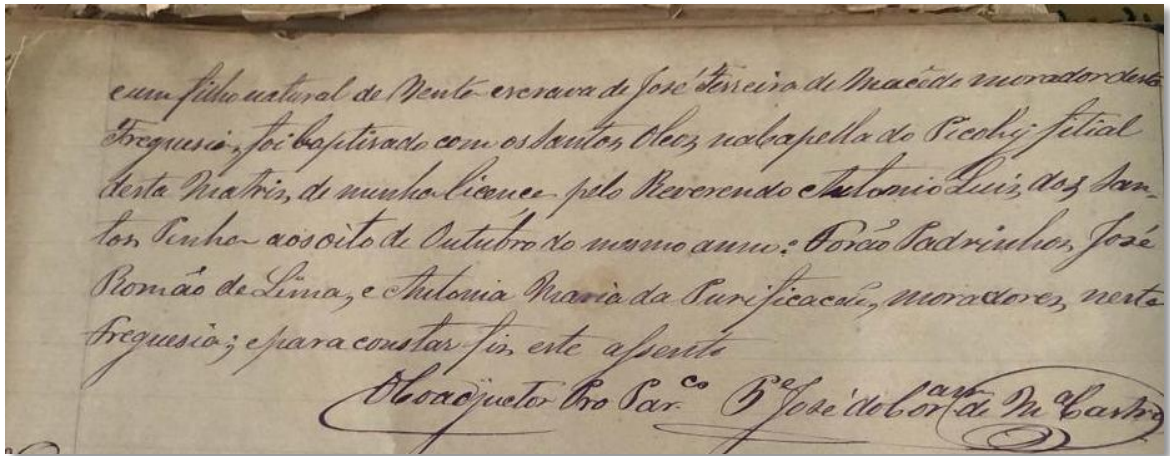 e um filho natural de Bento escrava de José Ferreira de Macêdo morador desta
Freguesia, foi baptisado com os Santos Oleos na Capella do Picohy filial
desta Matris, de minha licença pelo Reverendo Antonio Luis dos San-
tos Pinho aos oito de Outubro do mesmo anno: Forão Padrinhos José
Romão de Lima, e Antonia Maria da Purificacão, moradores nesta
freguesia; e para constar fis este assento
O Coadjuctor Pro Par.co Pe José do Coram de Ma Castro